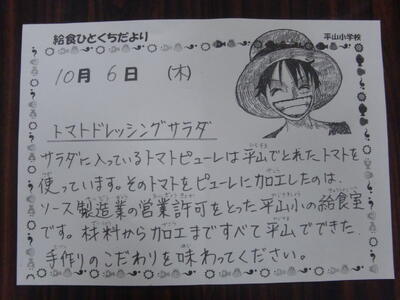 給食ひとくちだより
平山小学校
10月 6日 (木)
トマトドレッシングサラダ
サラダに入っているトマトピューレは平山でとれたトマトを
使っています。そのトマトをピューレに加工したのは、
ソース製造業の営業許可をとった平山小の給食室
です。材料から加工まですべて平山でできた
手作りのこだわりを味わってください。